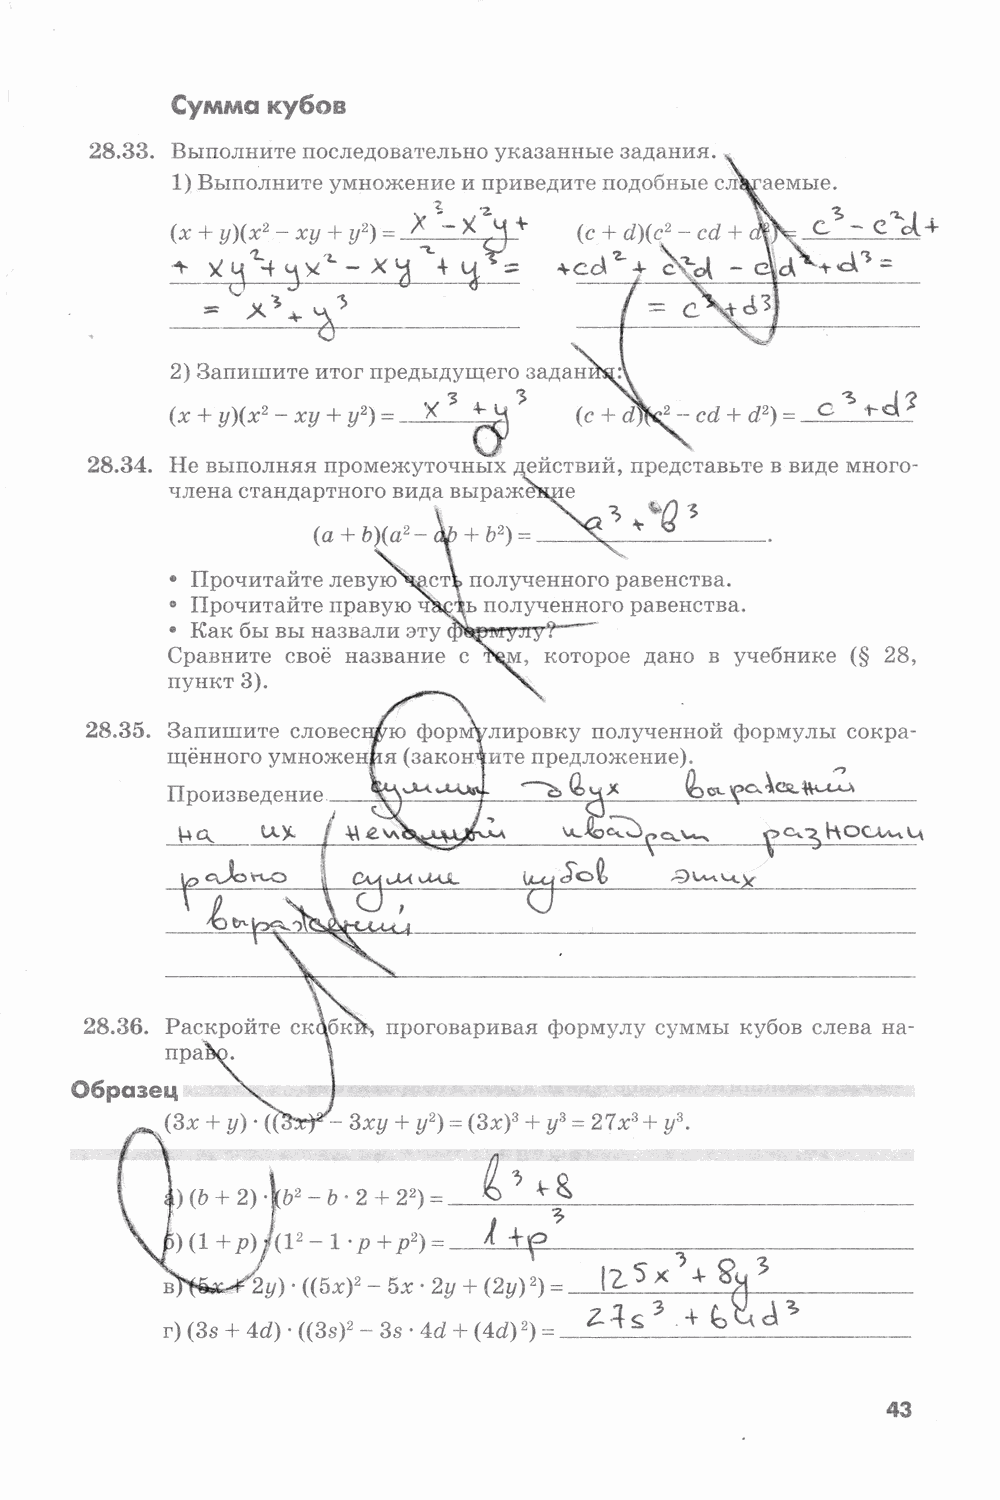 Сумма кубов
28.33. Выполните последовательно указанные задания.
1) Выполните умножение и приведите подобные слагаемые.
(x + y)(x² − xy + y²) = x³ − x²y + (c + d)(c² − cd + d²) = c³ − c²d +
+ xy² + yx² − xy² + y³ = +cd² + c²d − cd² + d³ =
= x³ + y³ = c³ + d³
2) Запишите итог предыдущего задания:
(x + y)(x² − xy + y²) = x³ + y³ (c + d)(c² − cd + d²) = c³ + d³
28.34. Не выполняя промежуточных действий, представьте в виде много-
члена стандартного вида выражение
(a + b)(a² − ab + b²) = a³ + b³.
• Прочитайте левую часть полученного равенства.
• Прочитайте правую часть полученного равенства.
• Как бы вы назвали эту формулу?
Сравните своё название с тем, которое дано в учебнике (§ 28,
пункт 3).
28.35. Запишите словесную формулировку полученной формулы сокра-
щённого умножения (закончите предложение).
Произведение суммы двух выражений
на их неполный квадрат разности
равно сумме кубов этих
выражений
28.36. Раскройте скобки, проговаривая формулу суммы кубов слева на-
право.
Образец
(3x + y) · ((3x)² − 3xy + y²) = (3x)³ + y³ = 27x³ + y³.
а) (b + 2) · (b² − b · 2 + 2²) = b³ + 8
б) (1 + p) · (1² − 1 · p + p²) = 1 + p³
в) (5x + 2y) · ((5x)² − 5x · 2y + (2y)²) = 125x³ + 8y³
г) (3s + 4d) · ((3s)² − 3s · 4d + (4d)²) = 27s³ + 64d³
43